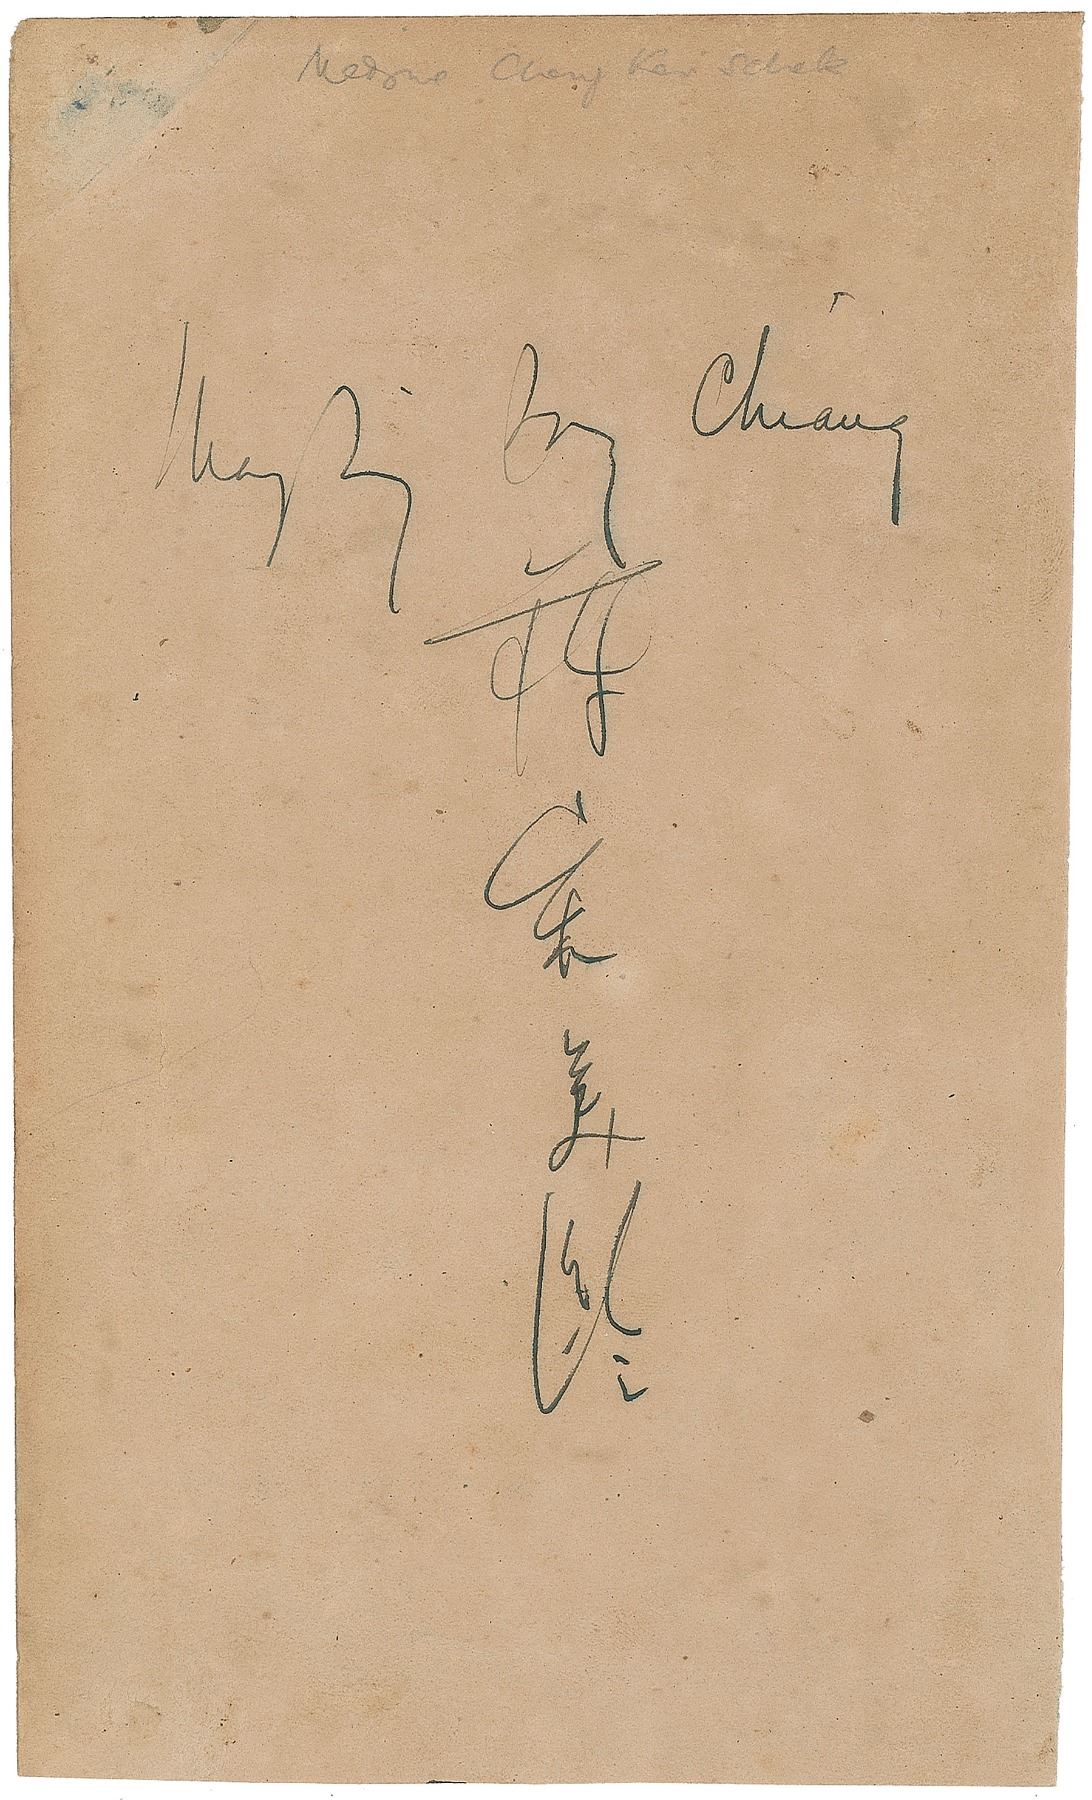 Madame Chang Kai Schek
Mayling Soong Chiang
蔣
宋
美
齡